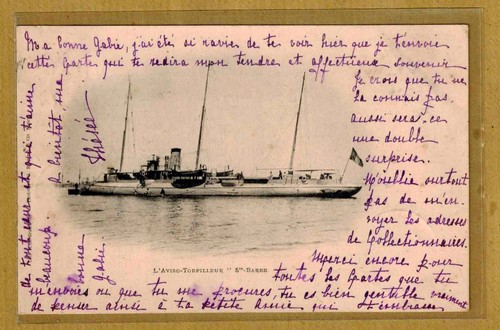 Ma bonne Gabie, j'ai été si ravie de te voir hier que je t'envoie
cette carte qui te redira mon tendre et affectueux souvenir
Je crois que tu ne
la connais pas,
aussi sera-ce
une double
surprise.
N'oublie surtout
pas de m'en-
voyer les adresses
de Collectionnaires.
Merci encore pour
toutes les cartes que tu
m'envoies ou que tu me procures, tu es bien gentille vraiment
de penser ainsi à ta petite amie qui t'embrasse
de tout cœur et qui t'aime
beaucoup
A bientôt, ma
bonne
Gabie.
L'AVISO-TORPILLEUR "STE-BARBE